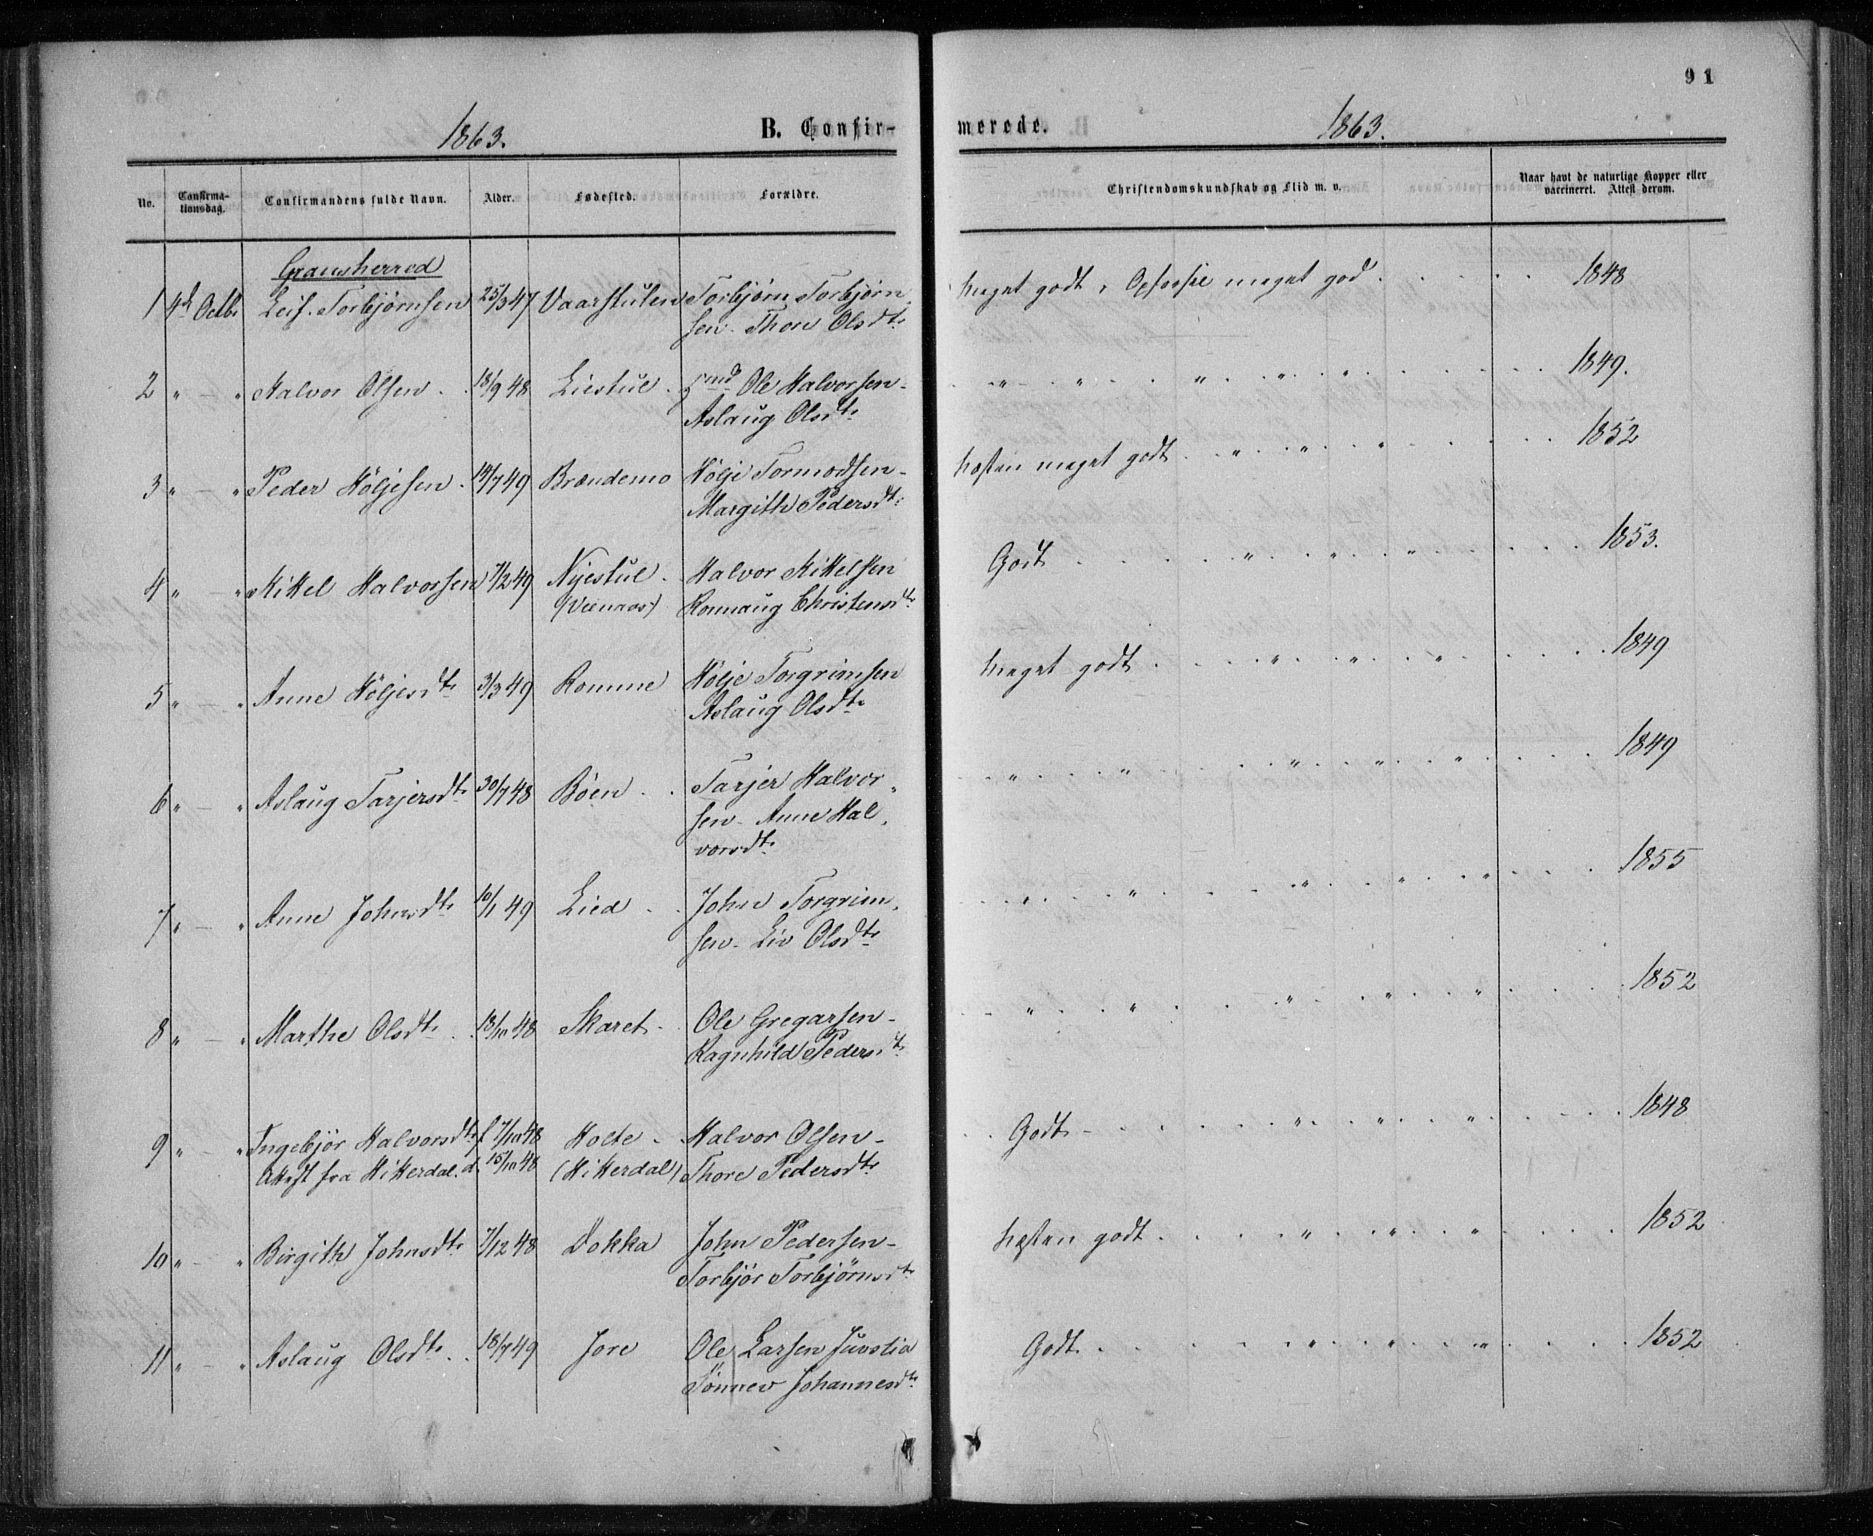 91
1863. B. Confir- merede. 1863.
No. Confirma-tionsdag. Confirmandens fulde Navn. Alder. Fødested. Forældre. Christendomskundskab og Flid m. v. Naar havt de naturlige Kopper eller vaccineret. Attest derom.
Gransherred
1 4d Octb. Leif Torbjørnsen 25/3 47 Vaarstulen Torbjørn Torbjørn- Meget godt, Opførsel meget god 1848
sen - Thore Olsdtr
2 " - " Halvor Olsen 18/9 48 Liestul Ole Halvorsen - " " " " " 1849.
Aslaug Olsdtr
3 " - " Peder Høljesen 19/7 49 Brændemo Hølje Tormodsen - Næsten meget godt " " " 1852
Margith Pedersdtr
4 " - " Kittel Halvorsen 7/2 49 Nyestul Halvor Kittelsen Godt " " " 1853.
Ronnaug Christensdtr
5 " " Anne Høljesdtr 3/3 49 Romme Hølje Torgrimsen Meget godt " " " 1849
Aslaug Olsdtr
6 " - " Aslaug Tarjersdtr 30/7 48 Bøen Tarjer Halvor- " " " " " 1849
sen - Anne Hal-
vorsdtr
7 " - " Anne Johnsdtr 10/1 49 Lied John Torgrim- " " " " 1855
sen - Liv Olsdtr
8 " - " Marthe Olsdtr 18/10 48 Skaret Ole Gregarsen - " " " " " 1852
Ragnhild Pedersdtr
9 " - " Ingebjør Halvorsdtr f 7/10 48 Holte - Halvor Olsen - Godt " " " 1848
Attest fra Hitterdal. d. 15/10 48 (Hitterdal) Thore Pedersdtr
10 " - " Birgith Johnsdtr 7/12 48 Dokka John Pedersen - Næsten godt " " " 1852
Torbjør Torbjørnsdtr
11 " - " Aslaug Olsdtr 18/7 49 Jore Ole Larsen Juvslia Godt " " " 1852
Sønnev Johannesdtr